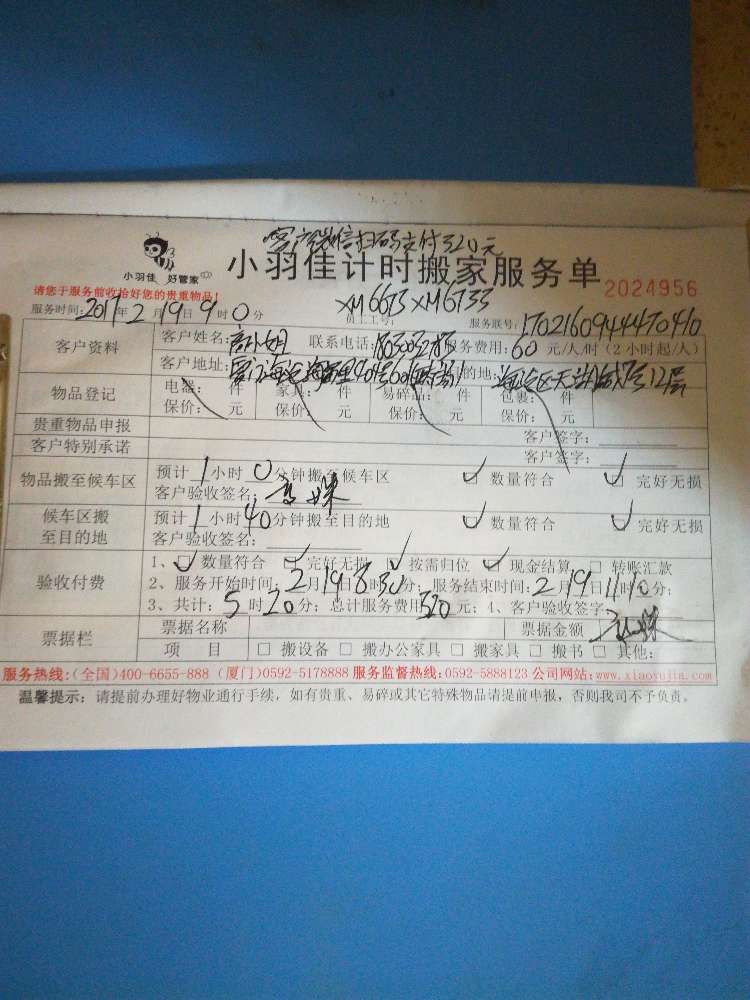 客户微信扫码支付320元
小羽佳 好管家
小羽佳计时搬家服务单 2024956
请您于服务前收拾好您的贵重物品!
XM6673 XM6733
服务时间:2017年2月19日9时0分 员工工号: 服务联号:1702160944470410
客户资料 客户姓名:高小姐 联系电话: 服务费用:60元/人/时(2小时起/人)
客户地址: 目的地:
物品登记 电器: 件 家具: 件 易碎品: 件 包裹: 件
保价: 元 保价: 元 保价: 元 保价: 元
贵重物品申报 客户签字:
客户特别承诺 客户签字:
物品搬至候车区 预计1小时0分钟搬至候车区 数量符合 完好无损
客户验收签名:
候车区搬至目的地 预计1小时40分钟搬至目的地 数量符合 完好无损
客户验收签名:
验收付费 1、数量符合 完好无损 按需归位 现金结算 转账汇款
2、服务开始时间:2月19日8时30分; 服务结束时间:2月19日11时10分;
3、共计:5时20分; 总计服务费用320元; 4、客户验收签字:
票据栏 票据名称 票据金额
项 目 搬设备 搬办公家具 搬家具 搬书 其他:
服务热线:(全国)400-6655-888 (厦门)0592-5178888 服务监督热线:0592-5888123 公司网站:www.xiaoyujia.com
温馨提示: 请提前办理好物业通行手续, 如有贵重、易碎或其它特殊物品请提前申报, 否则我司不予负责。